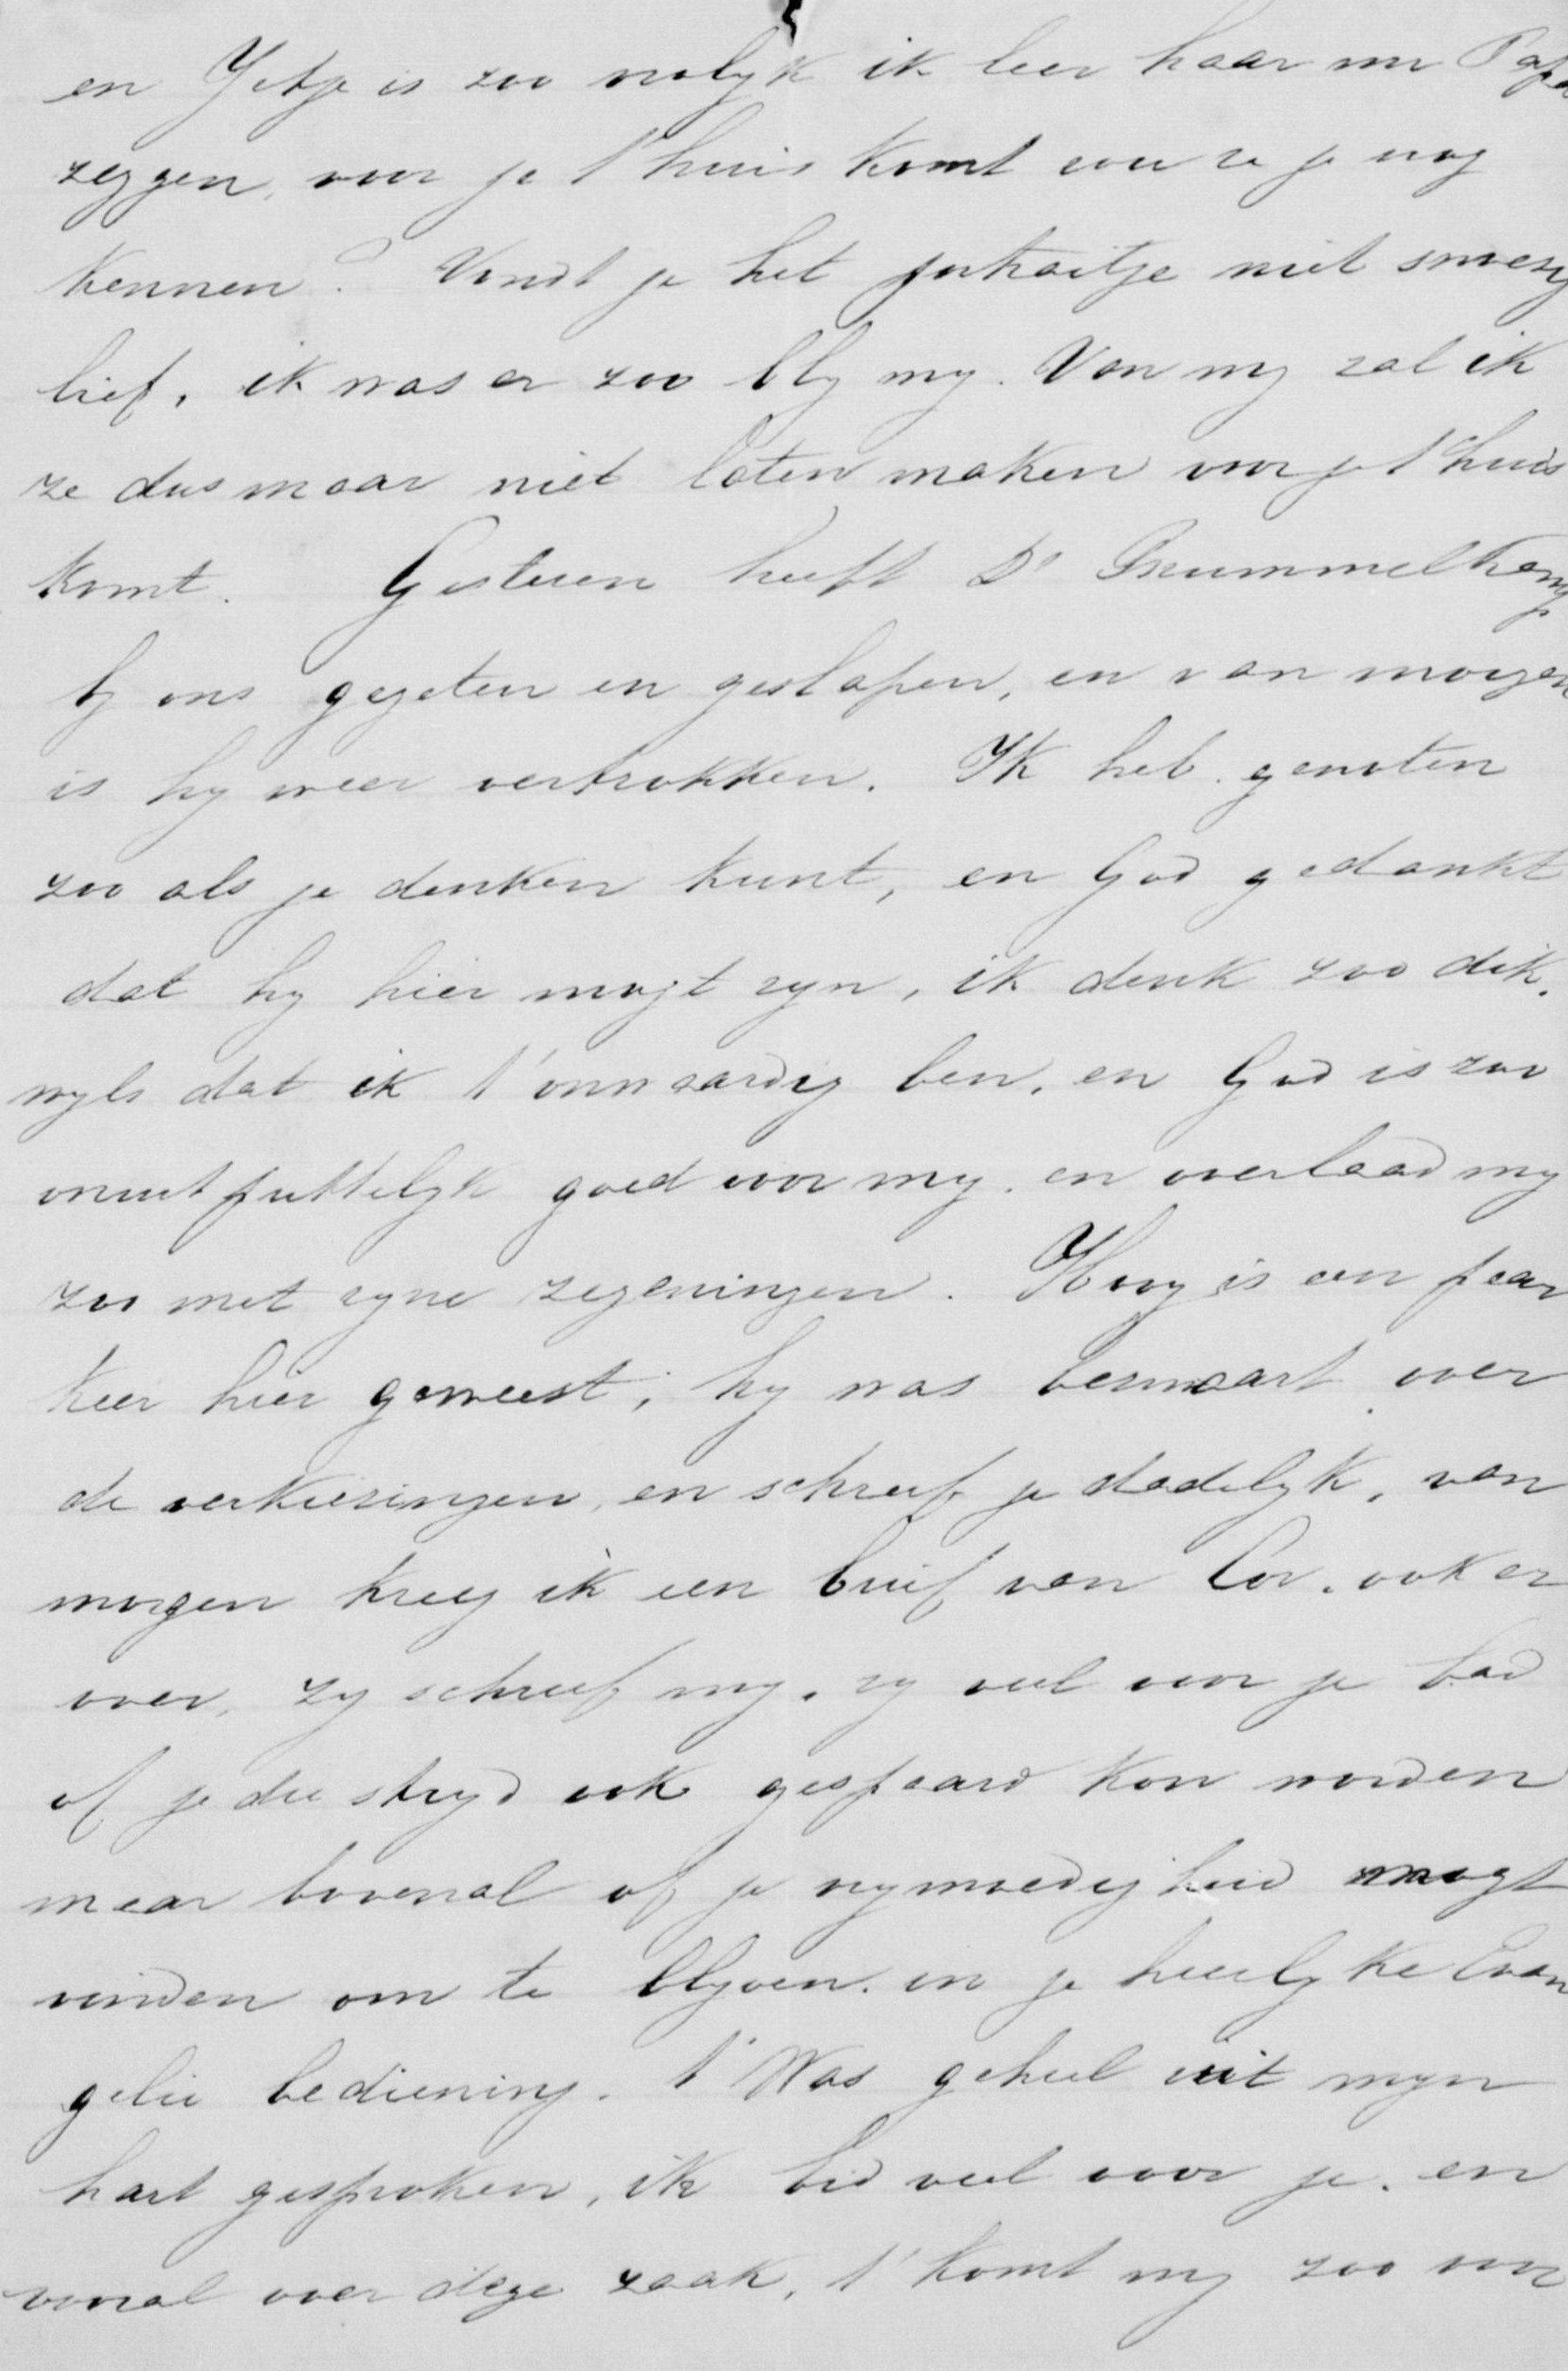 en Jetje is zoo vrolyk ik leer haar nu Papa
zeggen, voor je t'huis komt zou ze je nog
kennen? Vondt je het portraitje niet snoezig
lief, ik was er zoo bly mij. Van my zal ik
ze dus maar niet laten maken voor je t'huis
komt. Gisteren heeft Ds Brummelkamp
by ons gegeten en geslapen, en van morgen
is hy weer vertrokken. Ik heb genoten
zoo als je denken kunt, en God gedankt
dat hy hier mogt zyn, ik denk zoo dik.
wyls dat ik t'onwaardig ben, en God is zoo
onuitputtelyk goed voor my. en overlaad my
zoo met zyne zegeningen. Hoog is een paar
keer hier geweest, hy was benaauwt over
de verkiezingen, en schreef je dadelyk, van
morgen kreeg ik een brief van Cor. ook er
over, zy schreef my, zy veel voor je bad
of je die stryd ook gespaard kon worden
maar bovenal of je vrymoedigheid mogt
vinden om te blyven. in je heerlyke Evan
gelie bediening. t'Was geheel uit myn
hart gesproken, ik bid veel voor je. en
vooral over deze zaak, t'komt my zoo voor